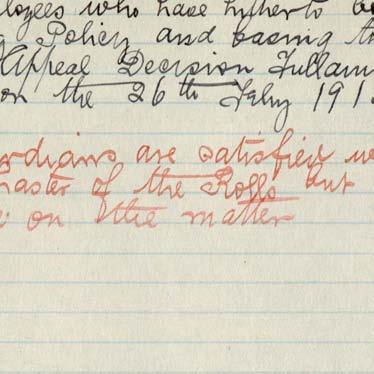 loyees who have hitherto be
g Policy and basing th
Appeal Decision Fullam
on the 26th July 191
rdians are satisfied w
master of the Rolls but
on the matter